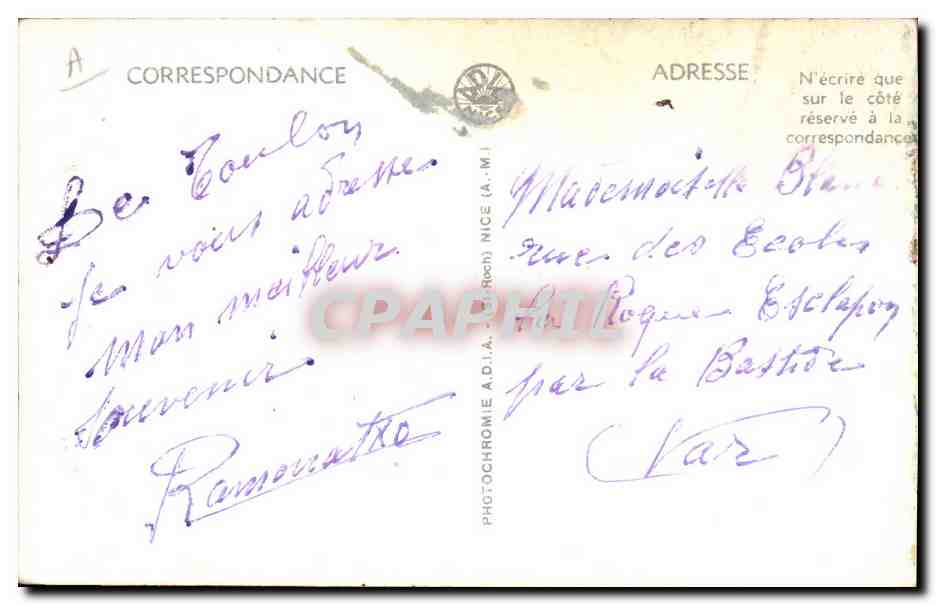 A
CORRESPONDANCE
ADRESSE
N'écrire que
sur le côté
réservé à la
correspondance
De Toulon
je vous adresse
mon meilleur
souvenir.
Mademoiselle
rue des Ecoles
La Roque Esclapon
par la Bastide
(Var)
PHOTOCHROMIE A.D.I.A. NICE (A.-M.)
CPAPHIL